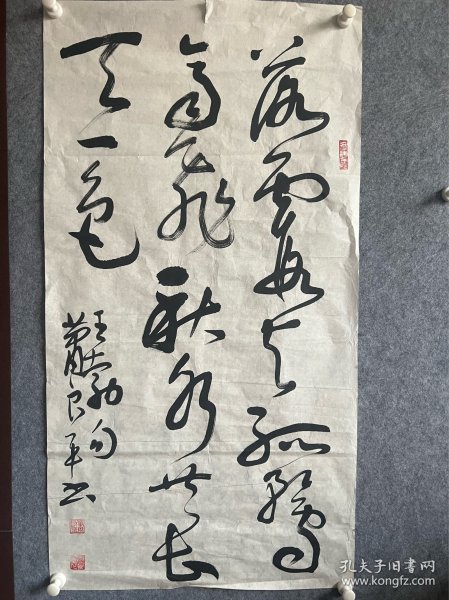 落霞与孤鹜
齐飞秋水共长
天一色
王勃句
萧良平书
孔夫子旧书网
www.kongfz.com